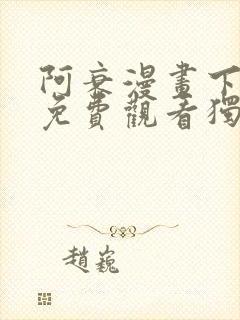 阿衰漫畫下
免費觀看獨
趙巍